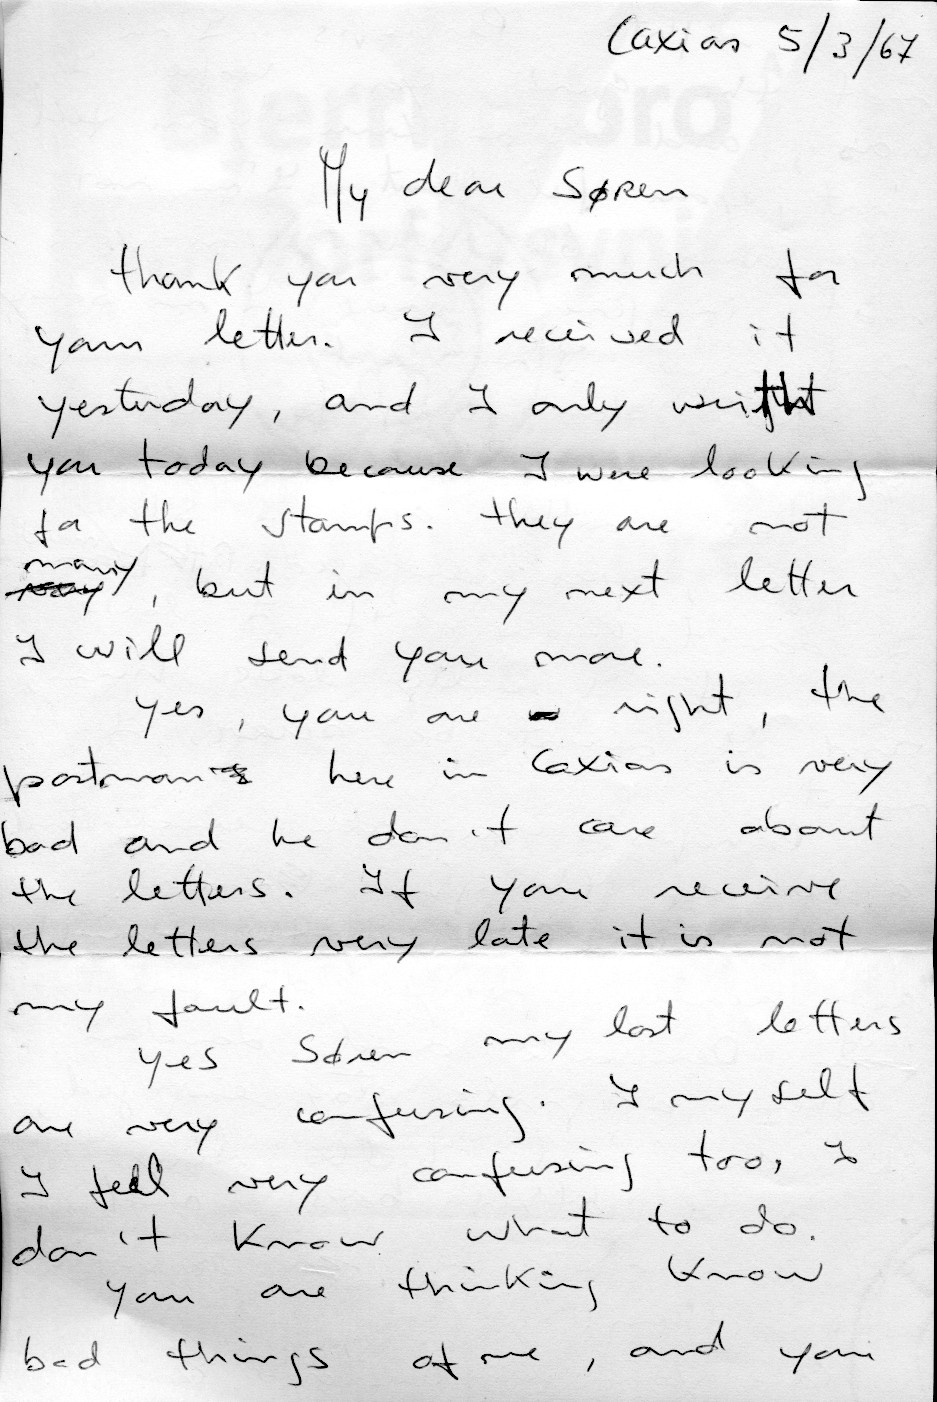 Caxias 5/3/67
My dear Søren
thank you very much for
your letter. I received it
yesterday, and I only
you today because I were looking
for the stamps. they are not
many, but in my next letter
I will send you more.
Yes, you are right, the
postman here in Caxias is very
bad and he don't care about
the letters. If you receive
the letters very late it is not
my fault.
Yes Søren my last letters
are very confusing. I my self
I feel very confusing too, I
don't know what to do.
You are thinking know
bad things of me, and you